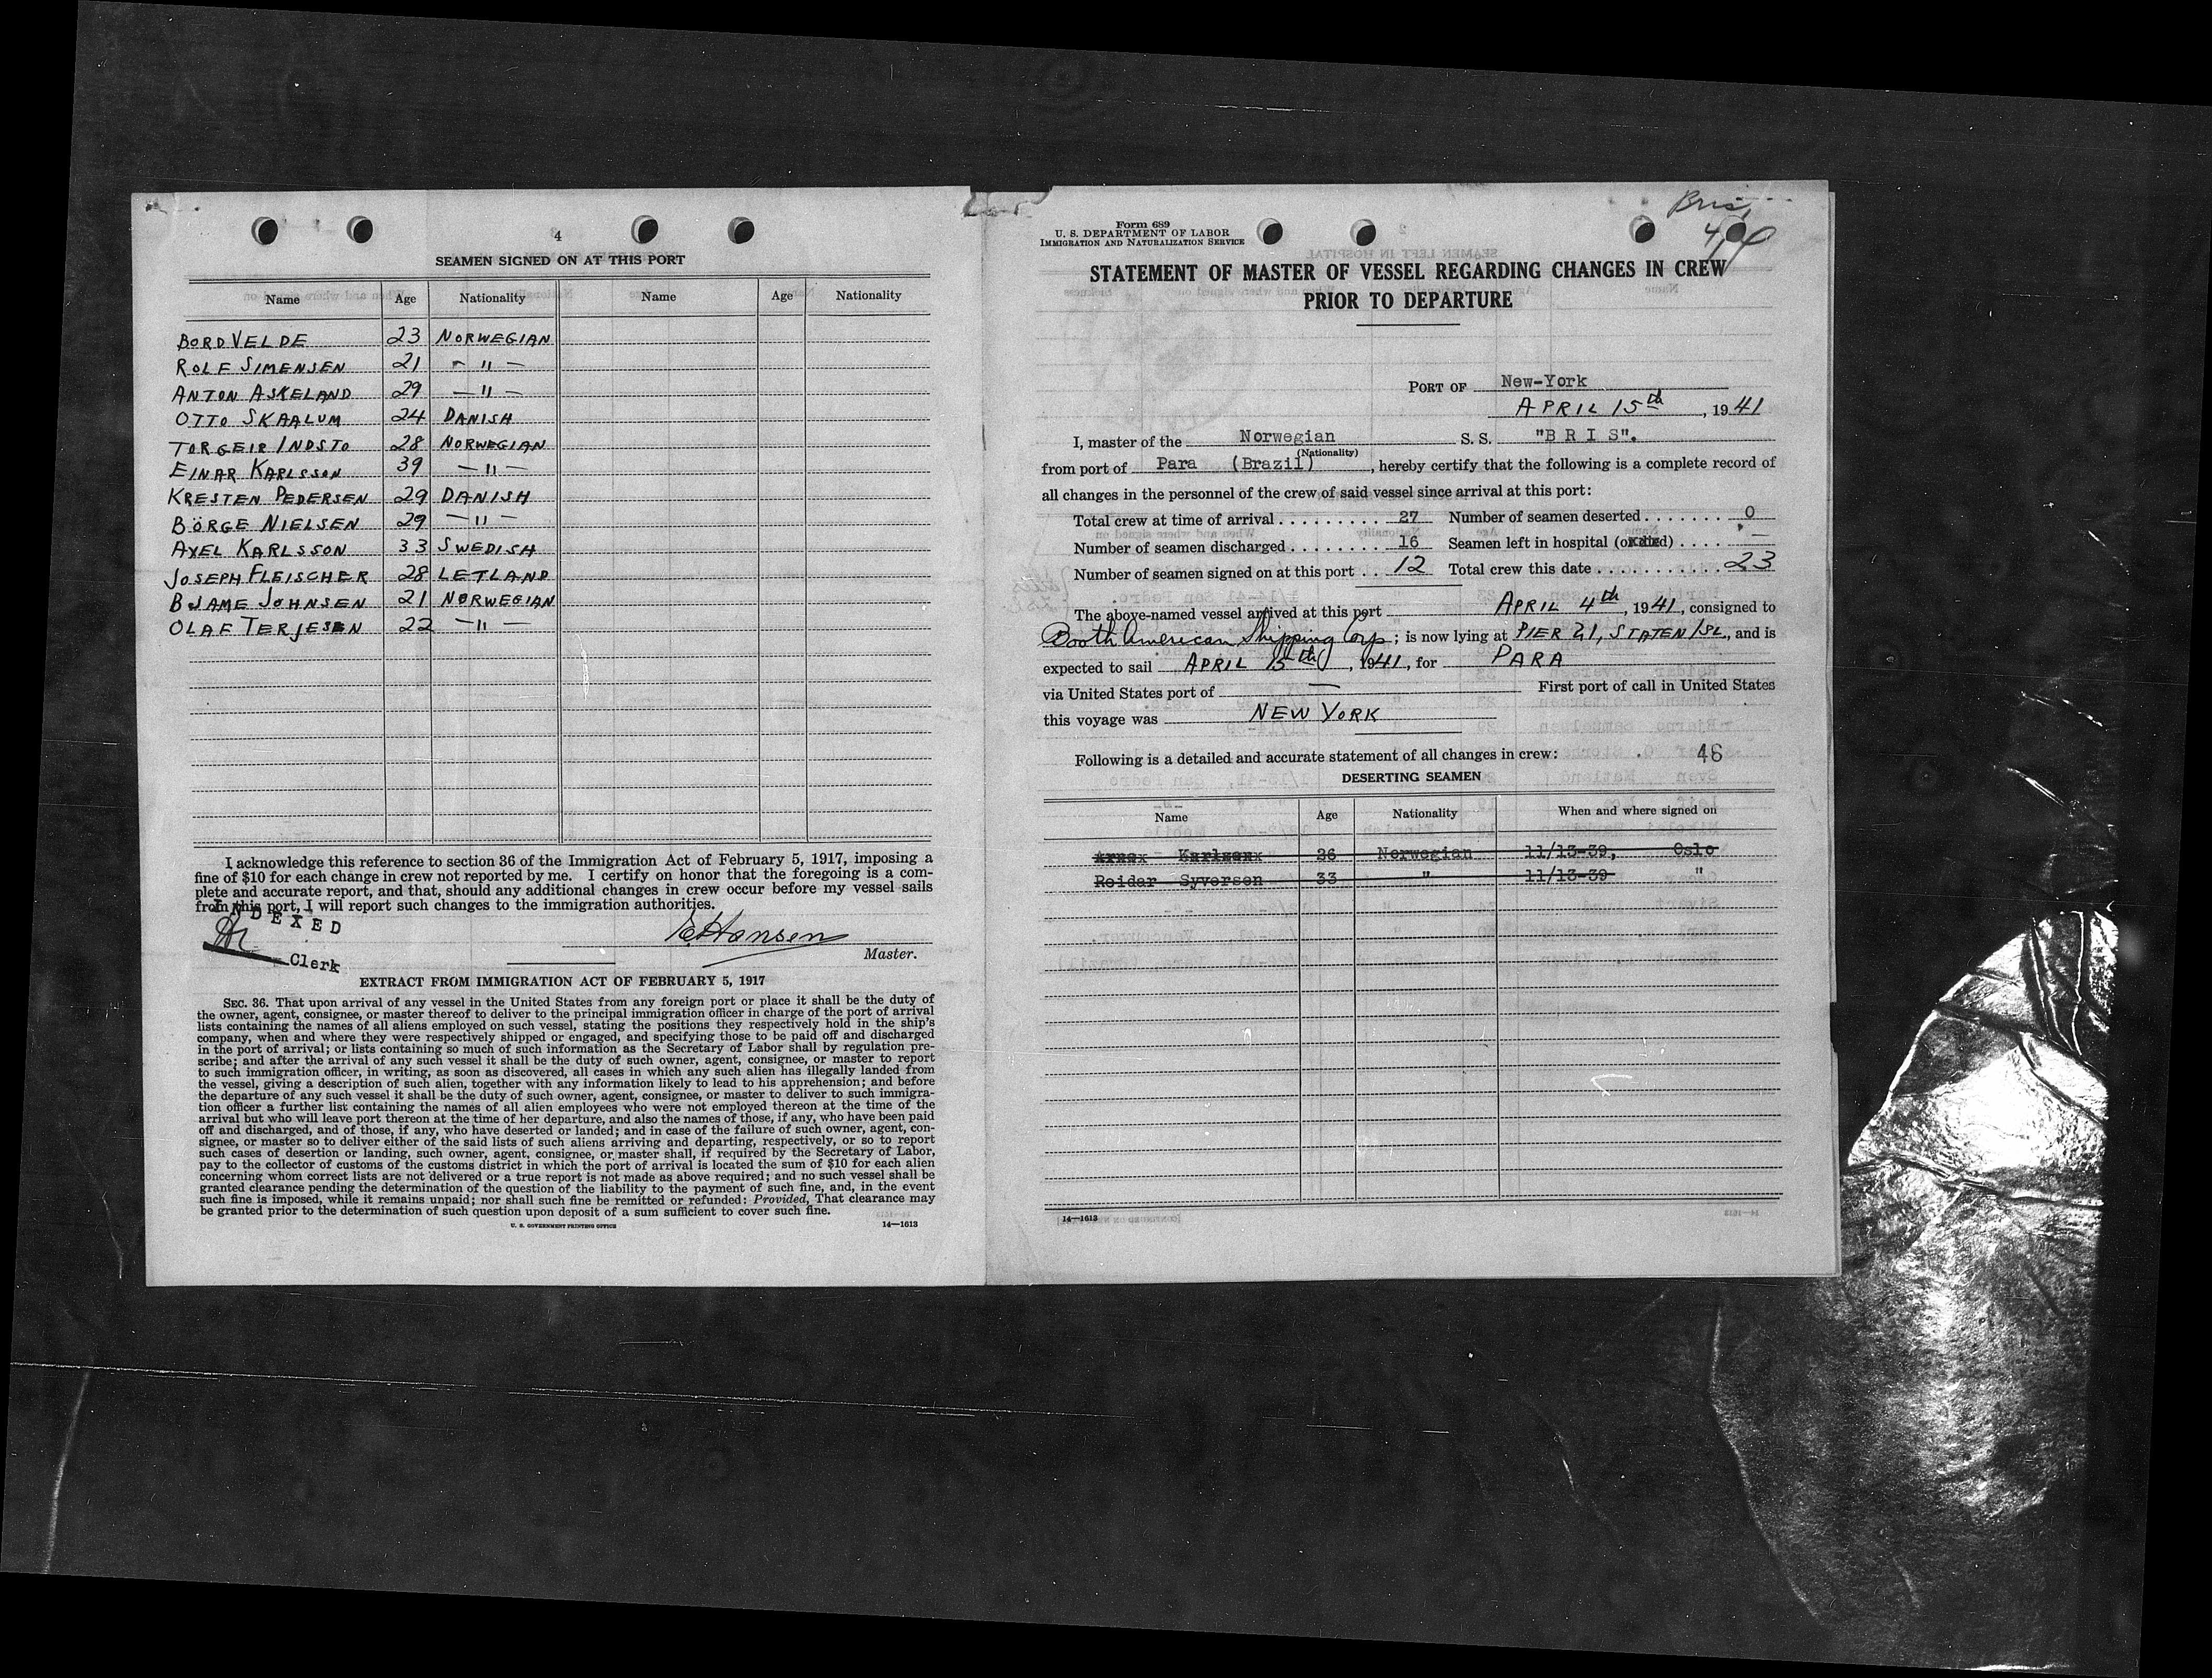 4
SEAMEN SIGNED ON AT THIS PORT
Name Age Nationality Name Age Nationality
BORD VELDE 23 NORWEGIAN
ROLF SIMENSEN 21 - " -
ANTON ASKELAND 29 - " -
OTTO SKAALUM 24 DANISH
TORGEIR INDSTO 28 NORWEGIAN
EINAR KARLSSON 39 - " -
KRESTEN PEDERSEN 29 DANISH
BÖRGE NIELSEN 29 - " -
AXEL KARLSSON 33 SWEDISH
JOSEPH FLEISCHER 28 LETLAND
BJAME JOHNSEN 21 NORWEGIAN
OLAF TERJESEN 22 - " -
I acknowledge this reference to section 36 of the Immigration Act of February 5, 1917, imposing a
fine of $10 for each change in crew not reported by me. I certify on honor that the foregoing is a com-
plete and accurate report, and that, should any additional changes in crew occur before my vessel sails
from this port, I will report such changes to the immigration authorities.
INDEXED
EHansen
Clerk
Master.
EXTRACT FROM IMMIGRATION ACT OF FEBRUARY 5, 1917
SEC. 36. That upon arrival of any vessel in the United States from any foreign port or place it shall be the duty of
the owner, agent, consignee, or master thereof to deliver to the principal immigration officer in charge of the port of arrival
lists containing the names of all aliens employed on such vessel, stating the positions they respectively hold in the ship's
company, when and where they were respectively shipped or engaged, and specifying those to be paid off and discharged
in the port of arrival; or lists containing so much of such information as the Secretary of Labor shall by regulation pre-
scribe; and after the arrival of any such vessel it shall be the duty of such owner, agent, consignee, or master to report
to such immigration officer, in writing, as soon as discovered, all cases in which any such alien has illegally landed from
the vessel, giving a description of such alien, together with any information likely to lead to his apprehension; and before
the departure of any such vessel it shall be the duty of such owner, agent, consignee, or master to deliver to such immigra-
tion officer a further list containing the names of all alien employees who were not employed thereon at the time of the
arrival but who will leave port thereon at the time of her departure, and also the names of those, if any, who have been paid
off and discharged, and of those, if any, who have deserted or landed; and in case of the failure of such owner, agent, con-
signee, or master so to deliver either of the said lists of such aliens arriving and departing, respectively, or so to report
such cases of desertion or landing, such owner, agent, consignee, or master shall, if required by the Secretary of Labor,
pay to the collector of customs of the customs district in which the port of arrival is located the sum of $10 for each alien
concerning whom correct lists are not delivered or a true report is not made as above required; and no such vessel shall be
granted clearance pending the determination of the question of the liability to the payment of such fine, and, in the event
such fine is imposed, while it remains unpaid; nor shall such fine be remitted or refunded: Provided, That clearance may
be granted prior to the determination of such question upon deposit of a sum sufficient to cover such fine.
U. S. GOVERNMENT PRINTING OFFICE 14—1613
Bris,
Form 689
U. S. DEPARTMENT OF LABOR
IMMIGRATION AND NATURALIZATION SERVICE
STATEMENT OF MASTER OF VESSEL REGARDING CHANGES IN CREW
PRIOR TO DEPARTURE
PORT OF New-York
APRIL 15th, 1941
I, master of the Norwegian S. S. "B R I S".
(Nationality)
from port of Para (Brazil), hereby certify that the following is a complete record of
all changes in the personnel of the crew of said vessel since arrival at this port:
Total crew at time of arrival . . . . . . . . . . 27 Number of seamen deserted . . . . . . . 0
Number of seamen discharged . . . . . . . . . 16 Seamen left in hospital (or died) . . . . —
Number of seamen signed on at this port . . 12 Total crew this date . . . . . . . . . . . 23
The above-named vessel arrived at this port APRIL 4th, 1941, consigned to
Booth American Shipping Corp; is now lying at PIER 21, STATEN ISL, and is
expected to sail APRIL 15th, 1941, for PARA
via United States port of — First port of call in United States
this voyage was NEW YORK
Following is a detailed and accurate statement of all changes in crew: 48
DESERTING SEAMEN
Name Age Nationality When and where signed on
Arne Karlsen 26 Norwegian 11/13-39, Oslo
Reidar Syversen 33 " 11/13-39 "
14—1613